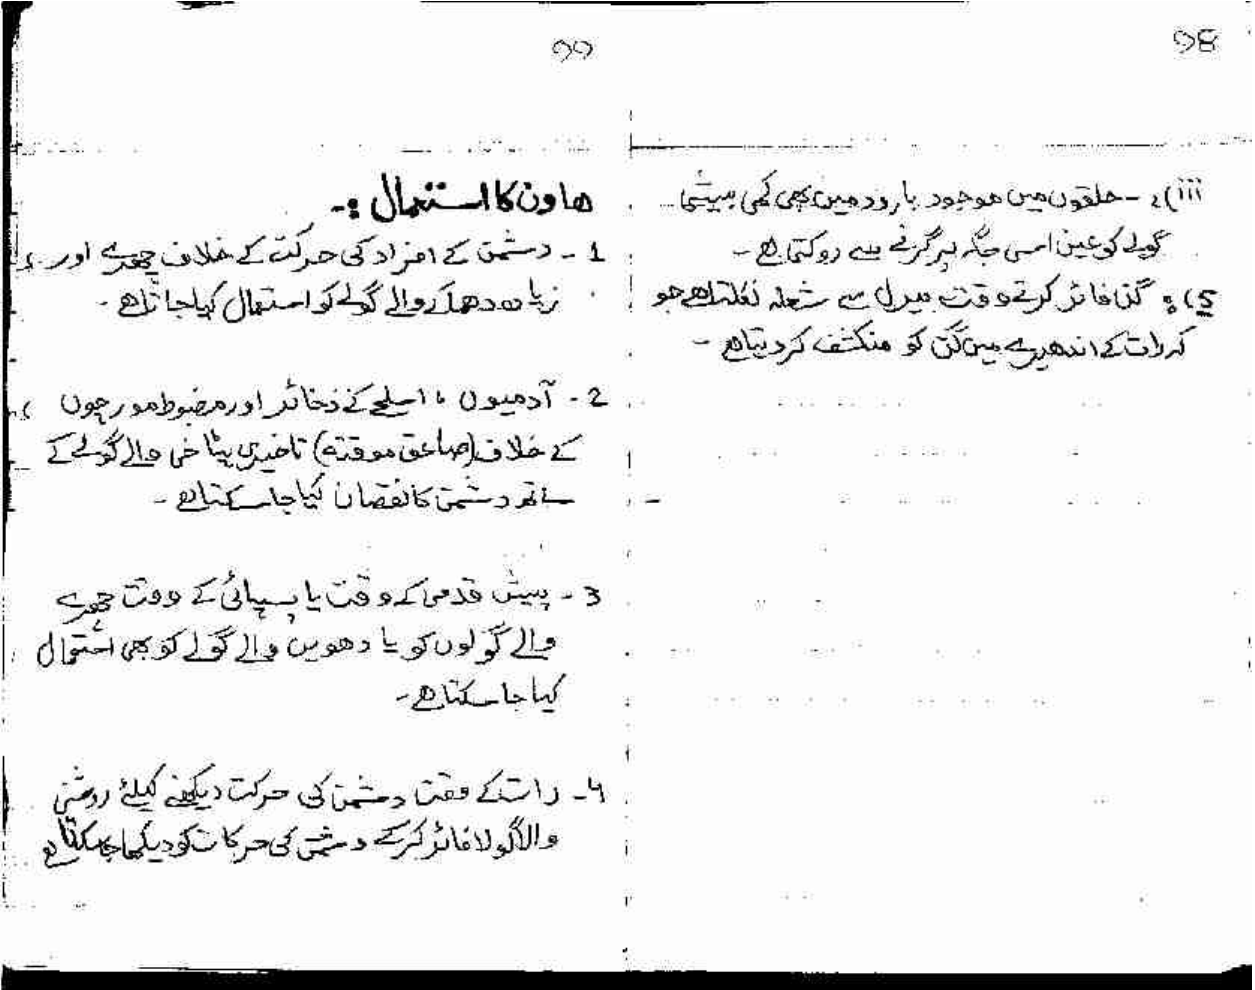 98
iii)؛- حلقوں میں موجود بارود میں بھی کمی بیشی
گولے کو عین اسی جگہ پر گرنے سے روکتی ہے -
5)؛ گن فائر کرتے وقت بیرل سے شعلہ نکلتا ہے جو
کہ رات کے اندھیرے میں گن کو منکشف کر دیتا ہے -
99
ھاون کا استعمال :-
1 - دشمن کے افراد کی حرکت کے خلاف چھرے اور
زیادہ دھماکے والے گولے کو استعمال کیا جاتا ہے -
2 - آدمیوں ، اسلحے کے ذخائر اور مضبوط مورچوں
کے خلاف (صاعق موقتہ) تاخیری پٹاخی والے گولے کے
ساتھ دشمن کا نقصان کیا جا سکتا ہے -
3 - پیش قدمی کے وقت یا پسپائی کے وقت چھرے
والے گولوں کو یا دھویں والے گولے کو بھی استعمال
کیا جا سکتا ہے -
4 - رات کے وقت دشمن کی حرکت دیکھنے کیلئے روشنی
والا گولا فائر کر کے دشمن کی حرکات کو دیکھا جا سکتا ہے